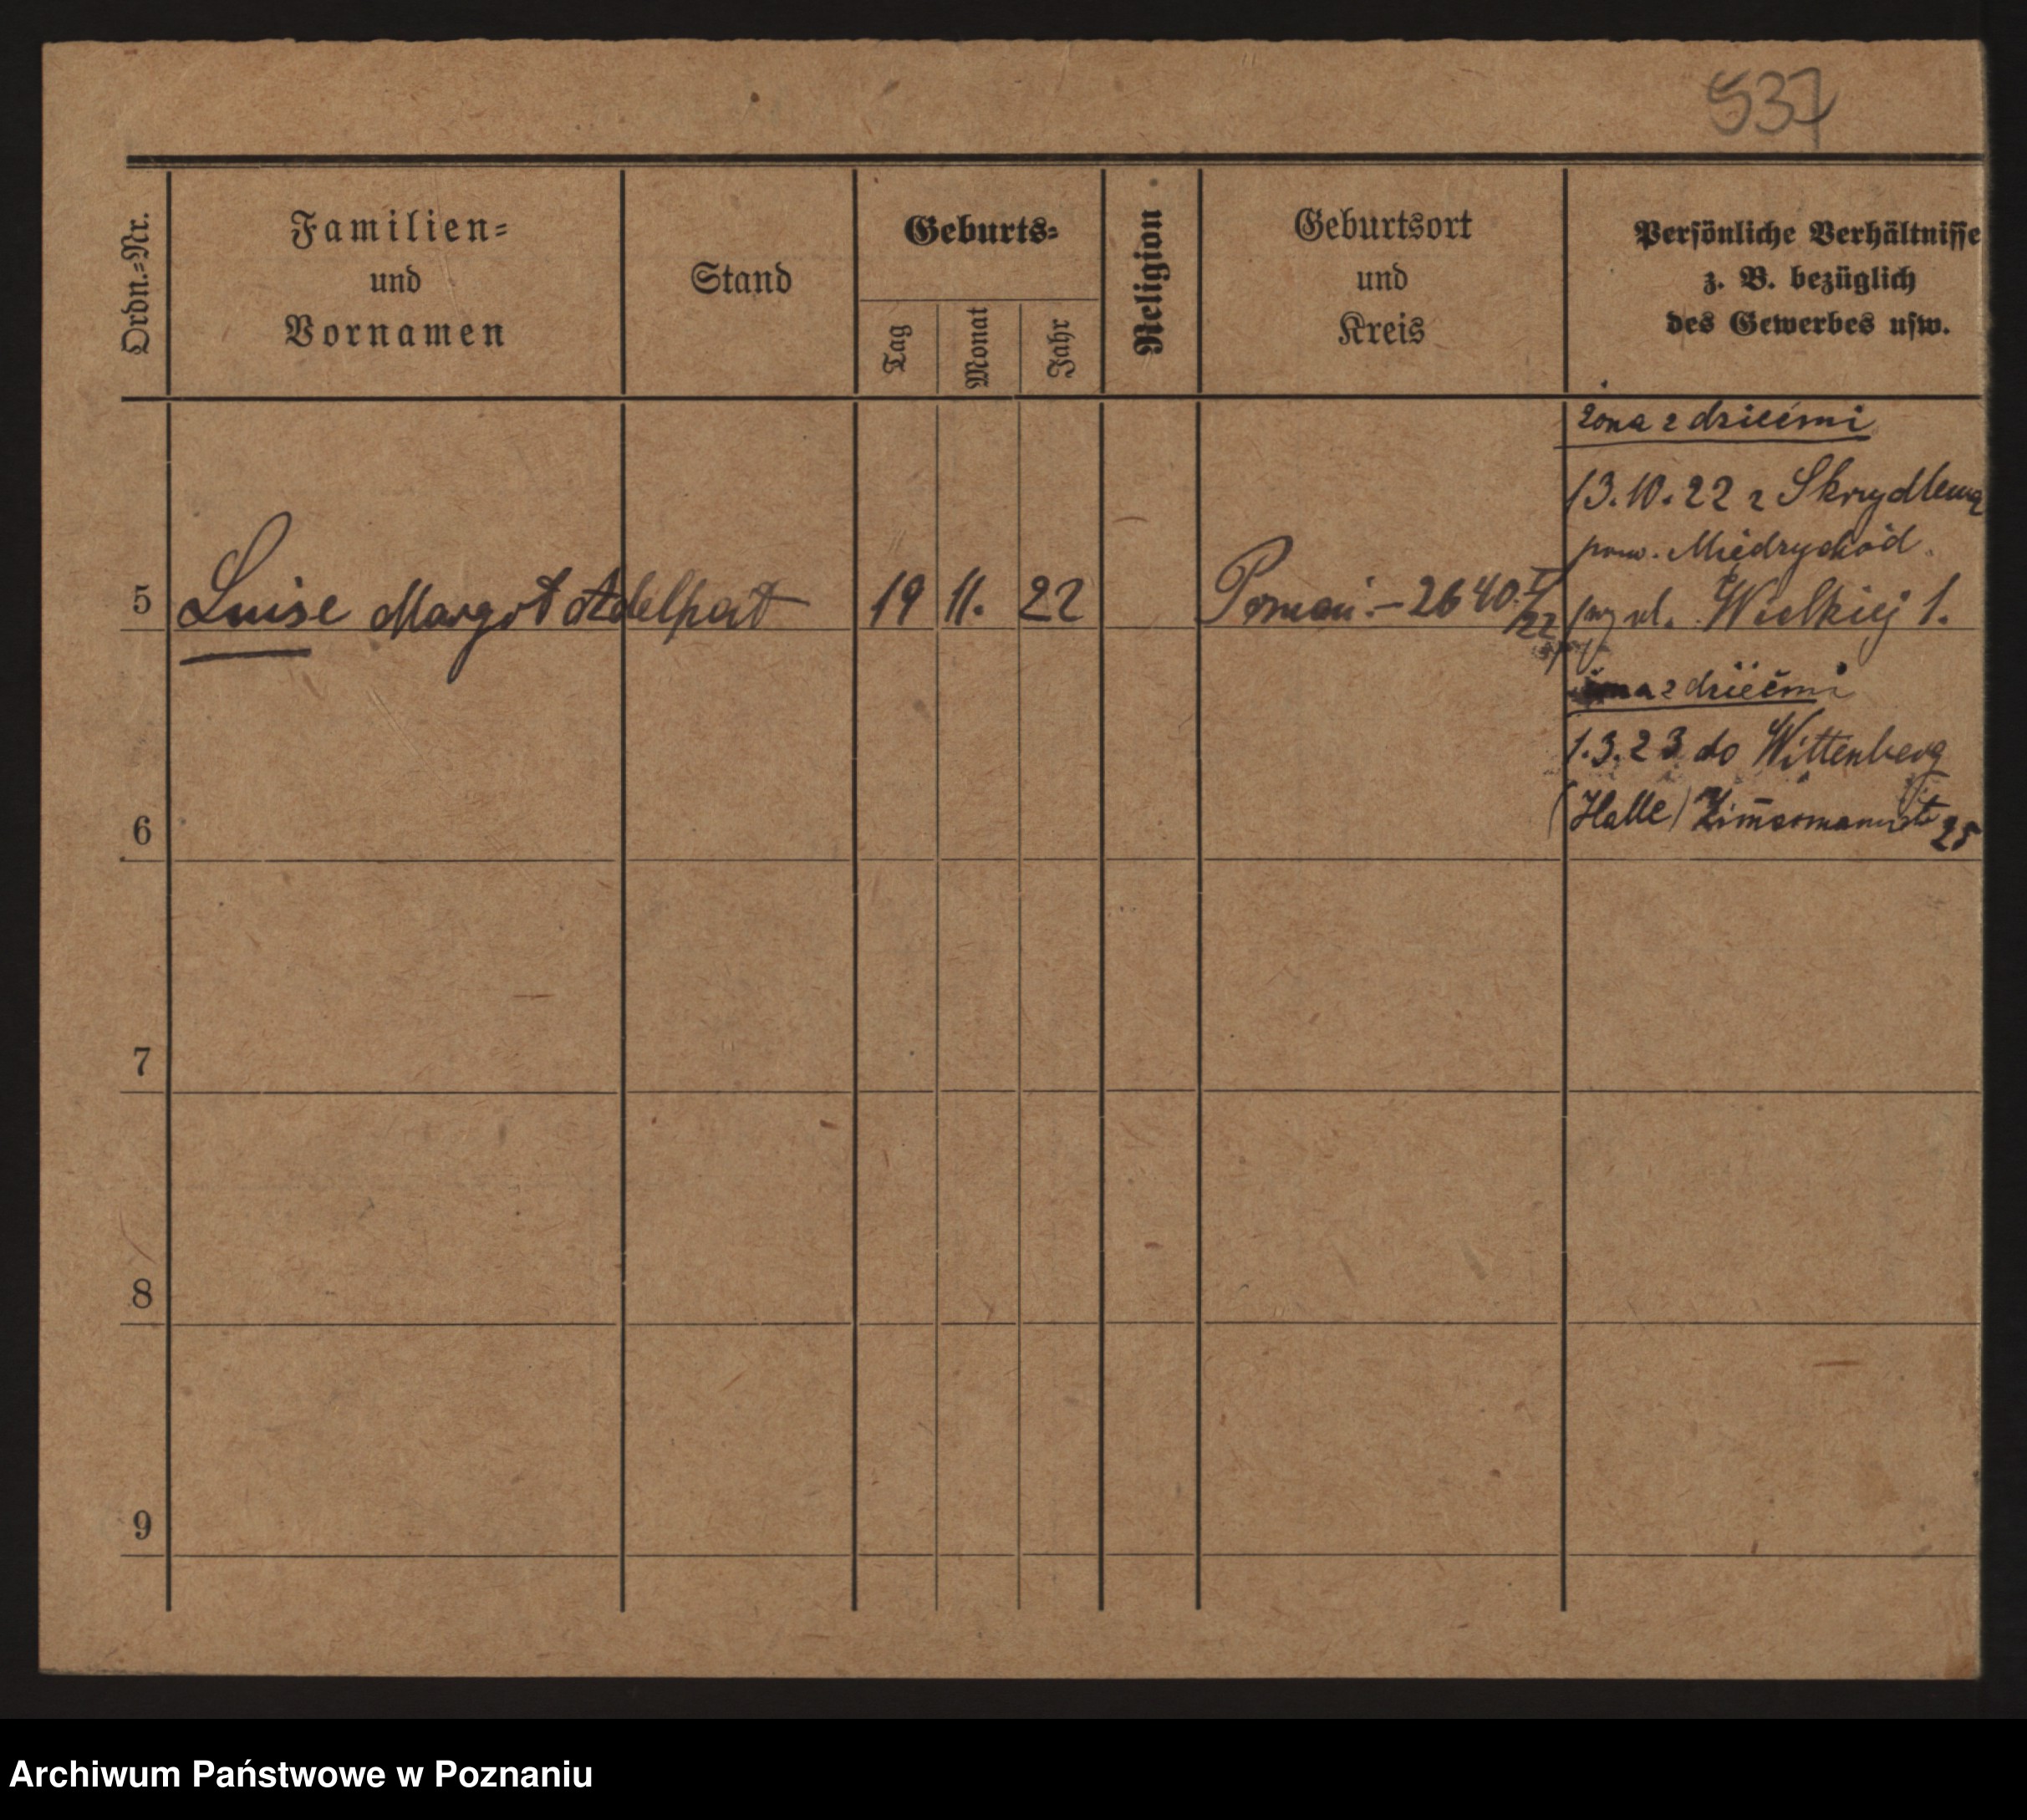 537
Ordn.-Nr.
Familien-
und
Vornamen
Stand
Geburts-
Tag
Monat
Jahr
Religion
Geburtsort
und
Kreis
Persönliche Verhältnisse
z. B. bezüglich
des Gewerbes usw.
żona z dziećmi
13.10.22 z Skrzydlewa
pow. Miedzychód.
5 Luise Margot 19 11. 22 Poznań. - 2640. I/22 ul. Wielkiej 1.
z dziećmi
1.3.23 do Wittenberg
6 (Halle) Zimmermannstr 25
7
8
9
Archiwum Państwowe w Poznaniu